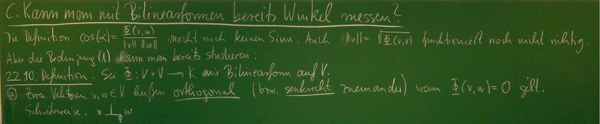 C. Kann man mit Bilinearformen bereits Winkel messen?
Die Definition cos(α) = Φ(v,w) / ‖v‖ ‖w‖ macht noch keinen Sinn. Auch ‖v‖ = √Φ(v,v) funktioniert noch nicht richtig.
Aber die Bedingung (⊥) kann man bereits studieren:
22.10. Definition. Sei Φ: V × V → K eine Bilinearform auf V.
ⓐ Zwei Vektoren v, w ∈ V heißen orthogonal (bzw. senkrecht zueinander) wenn Φ(v,w) = 0 gilt.
Schreibweise: v ⊥_Φ w